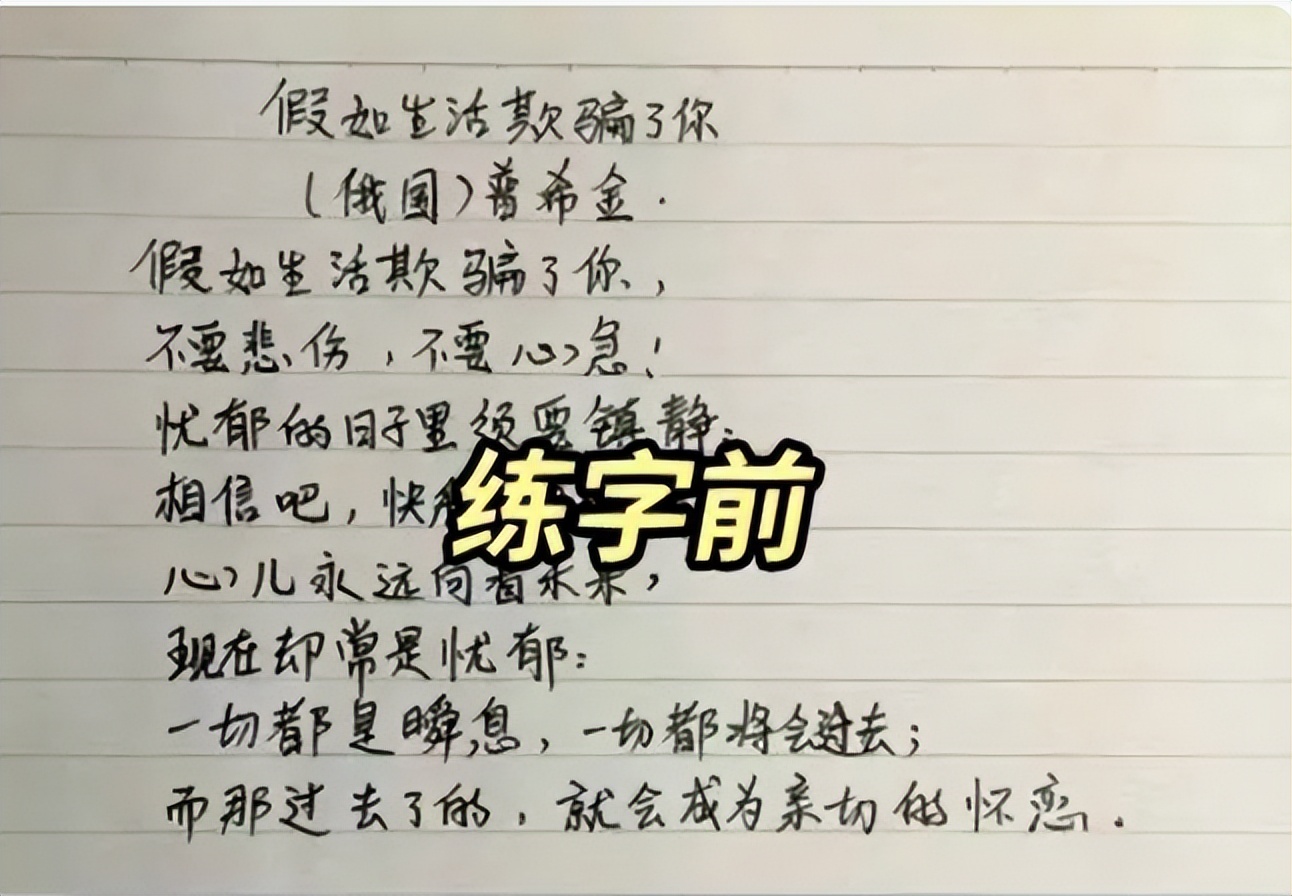 假如生活欺骗了你
(俄国)普希金.
假如生活欺骗了你,
不要悲伤,不要心急!
忧郁的日子里须要镇静:
相信吧,快
练字前
心儿永远向着未来,
现在却常是忧郁:
一切都是瞬息,一切都将会过去;
而那过去了的,就会成为亲切的怀恋.